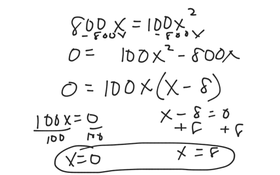 800x = 100x²
-800x -800x
0 = 100x² - 800x
0 = 100x(x - 8)
100x = 0 x - 8 = 0
100 100 + 8 + 8
x = 0 x = 8